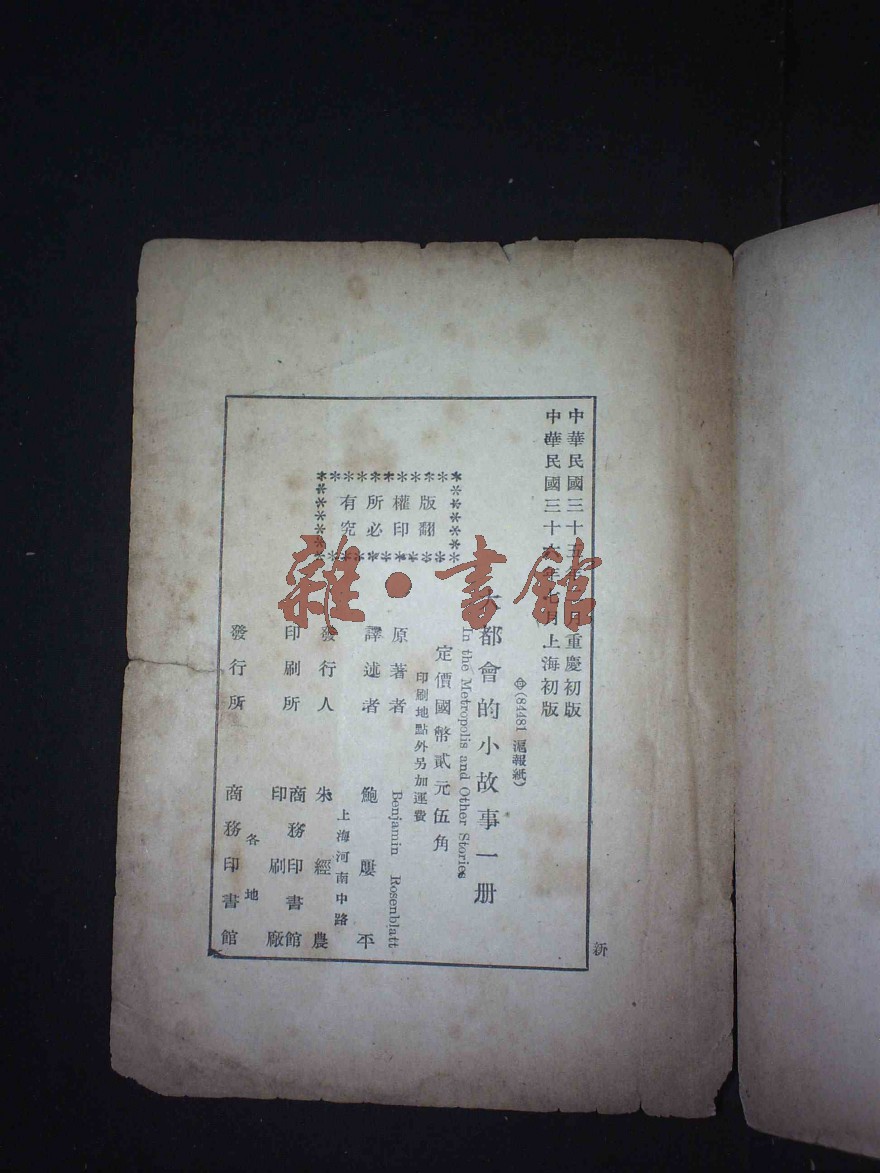 中華民國三十五年月重慶初版
中華民國三十六年七月上海初版
(84481 滬報紙)
大都會的小故事一册
In the Metropolis and Other Stories
定價國幣貳元伍角
印刷地點外另加運費
版權所有
翻印必究
原著者 Benjamin Rosenblatt
譯述者 鮑屢平
上海河南中路
發行人 朱經農
印刷所 商務印書館印刷廠
各地
發行所 商務印書館
新
雜·書館